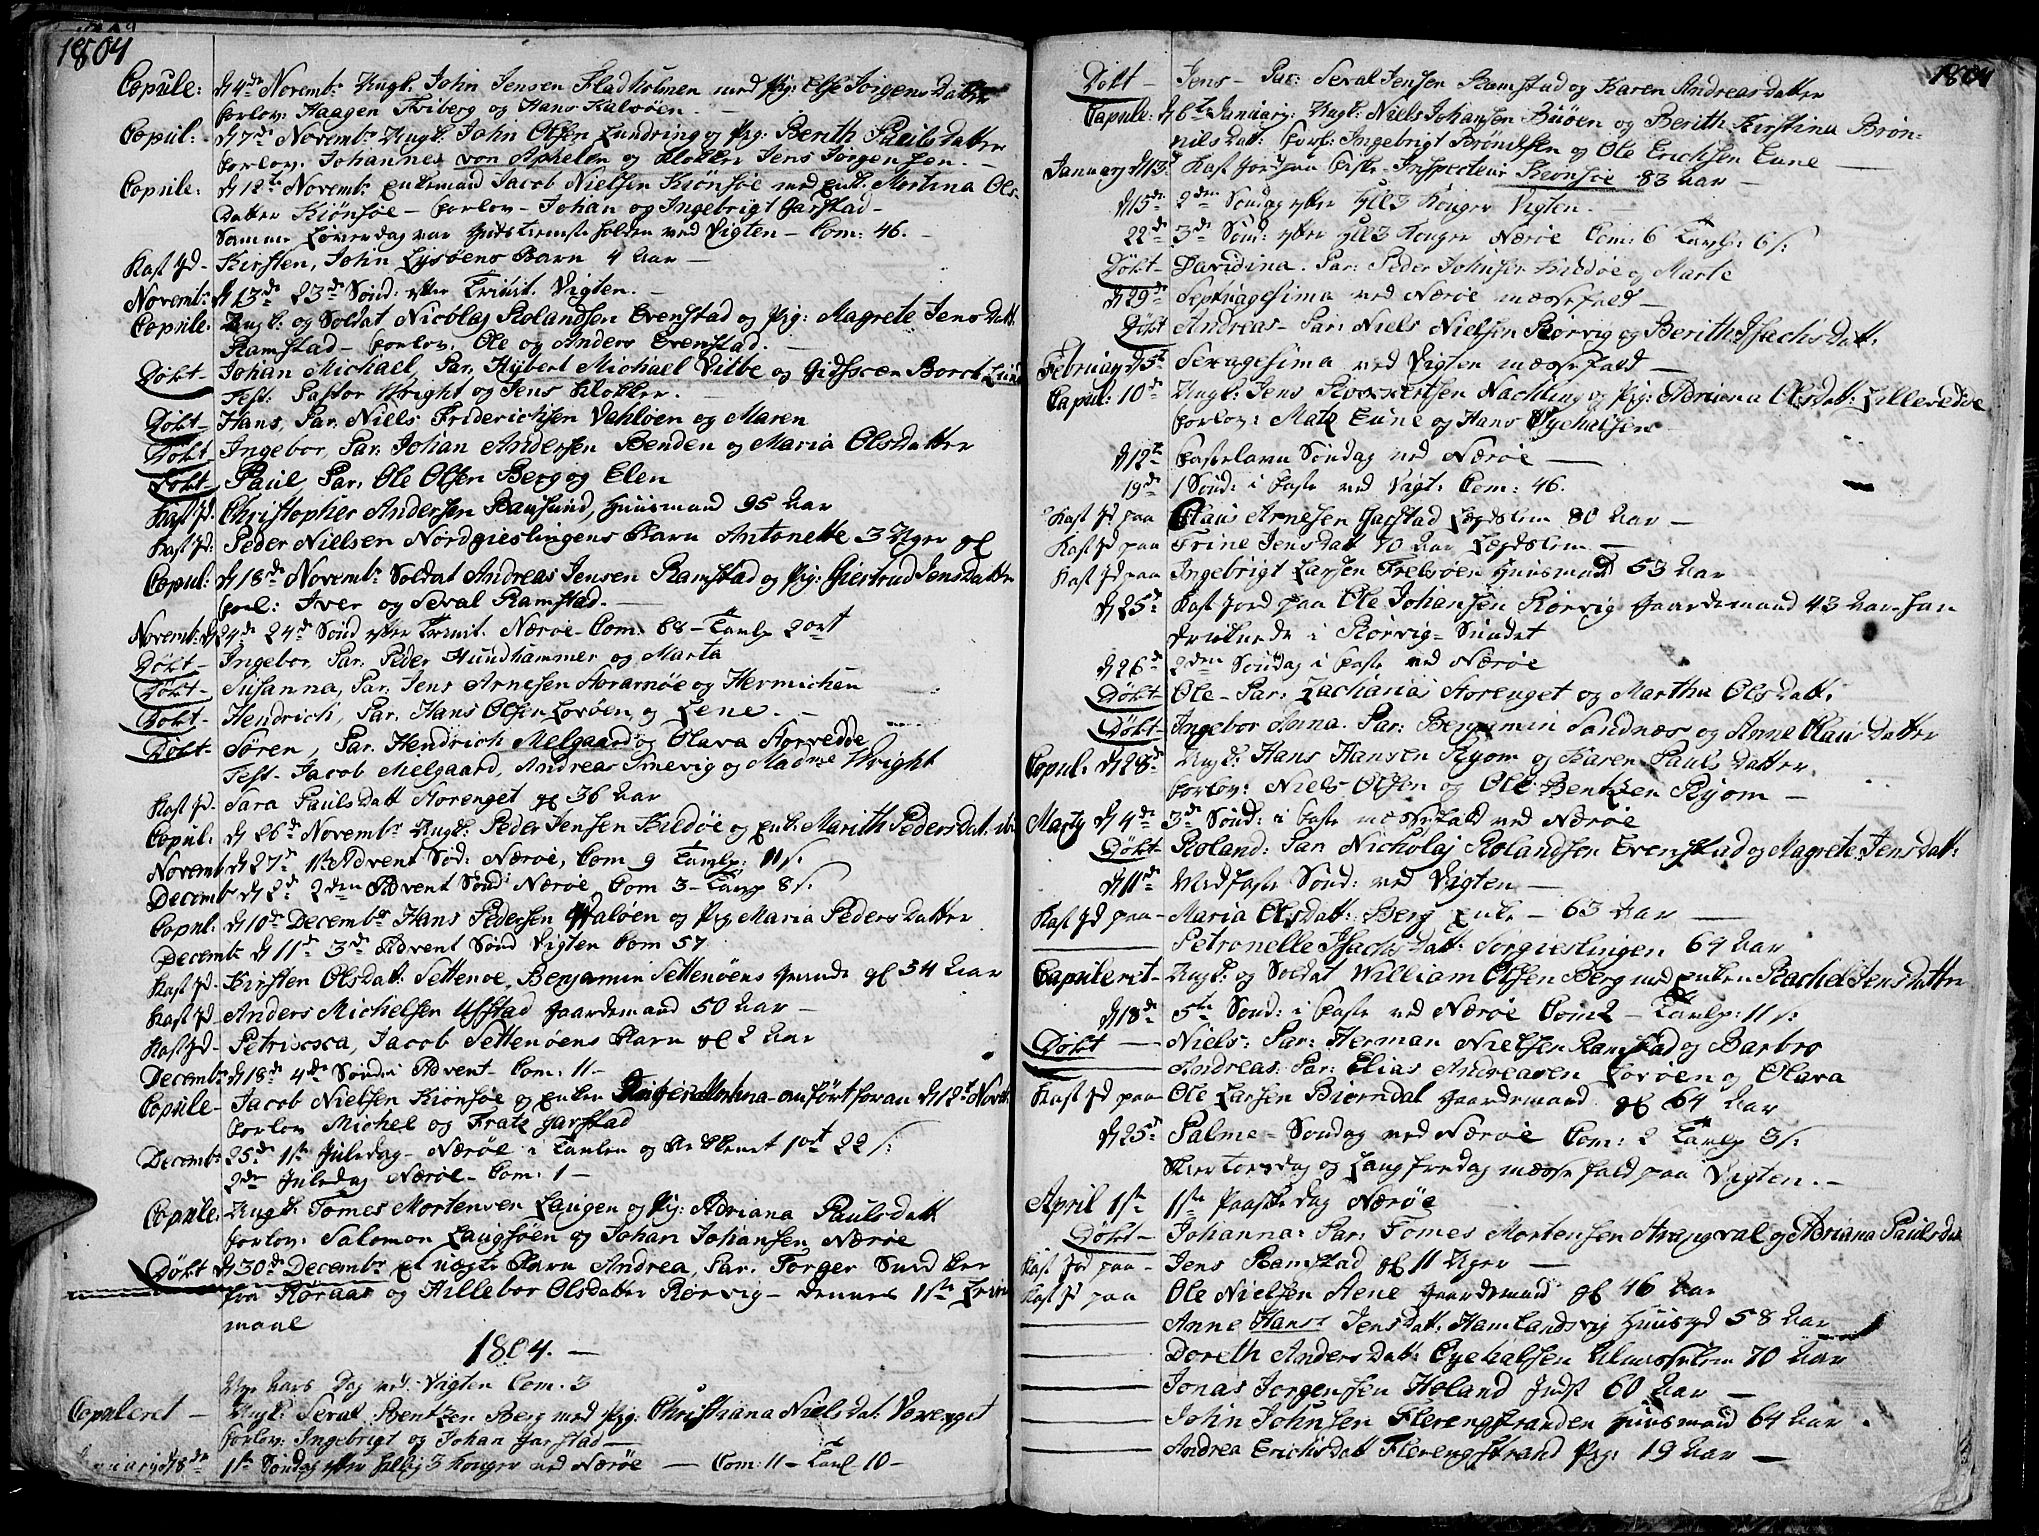 1804
Copule: d 4de Novembr Ungk. John Jensen Fladholmen med Pig: Else Jörgens Datter
forlov: Haagen Friberg og Hans Kalvöen. —
Copul: d 7de Novembr Ungk: John Olsen Lundring og Pig: Berith Pauls Datter
forlov: Johannes von Aphelen og Klokker Jens Jörgensen. —
Copule: d 12te Novembr Enkemand Jacob Nielsen Kiönsöe med Enk. Martina Ols
Datter Kiönsöe — forlov — Johan og Ingebrigt Garstad —
Samme Löverdag var Gudstieneste holden ved Vigten — Com: 46. —
Kast Jd — Kirsten, John Lysöens Barn 4 Aar —
Novembr: d 13de 23de Sönd: efter Trinit. Vigten. —
Copule: Ungk: og Soldat Nicolaj Rolandsen Evenstad og Pig: Magrete Jens Datt.
Ramstad — forlov. Ole og Anders Evenstad. —
Döbt — Johan Michael, Par. Hybert Michael Vibe og Borch Lund
Test: Pastor Wright og Jens Klokker. —
Döbt — Hans, Par. Niels Friderichsen Vahlöen og Maren
Döbt Ingebor, Par. Johan Andersen Benden og Maria Olsdatter
Döbt — Paul, Par. Ole Olsen Berg og Elen
Kast Jd. Christopher Andersen Ramsund, Huusmand 95 Aar
Kast Jd: Peder Nielsen Nordgieslingens Barn Antonette 3 Uger gl
Copul: d 18de Novembr Soldat Andreas Jensen Ramstad og Pig: Giertrud Jensdatter
forl: Iver og Seval Ramstad. —
Novembr: d 24de 24de Sönd efter Trinit. Næröe — Com: 68 — Tavlp 2 ort
Döbt — Ingebor, Par. Peder Hundhammer og Marta
Döbt — Susanna, Par. Jens Arnesen Horarnöe og Hermichen
Döbt — Hendrich, Par. Hans Olsen Loröen og Lene. —
Döbt — Sören, Par. Hendrich Melgaard og Olava Storvedde
Test — Jacob Melgaard, Andreas Smevig og Madme Wright
Kast Jd — Sara Pauls Datt Horenget gl 36 Aar
Copul: d 26de Novembr Ungk: Peder Jensen Kildöe og Enk: Marith Peders Dat: ib
Novemb d 27de 1ste Advent Sod: Næröe, Com 9 Tavlp: 11 s:
Decemb d 2de 2den Advent Sönd: Næröe, Com 3 — Tavlp 8 s:
Copul: d 10de Decembr Hans Pedersen Hvalöen og Pig Maria Peders Datter
Decembr d 11de 3de Advent Sönd Vigten Com 57
Kast Jd — Kirsten Olsdatt: Settenöe, Benjamin Settenöens gl 54 Aar
Kast Jd — Anders Michelsen Ufstad Gaardmand 50 Aar —
Kast Jd — Petricca, Jacob Settenöens Barn gl 2 Aar
Decembr: d 18de 4de Sönd: i Advent — Com: 11 —
Copule — Jacob Nielsen Kiönsöe og Enken Martina — anfört foran d 12te Novbr
forlov Michel og Fratz Garstad
Decembr: 25de 1ste Juledag — Næröe i Tavlen og Blocket 1 ort 22 s:
2den Juledag Næröe — Com: 1 —
Copule: Ungk. Tomes Mortensen Laugen og Pig: Adriana Paulsdatt
forlov: Salomon Laugsöen og Johan Johansen Næröe
Döbt d 30de Decembr Et uægte Barn Andrea, Par. Torger Sund
fra Röraas og Hillebor Olsdatter Rörvig — dennes 1ste Leier
maal
1804. —
Nye Aars Dag ved Vigten Com. 3
Copuleret — Ungk. Seval Bentzen Berg med Pig: Christiana Niels Dat: Vorenget
forlov: Ingebrigt og Johan Garstad —
Januarij d 8de 1ste Söndag efter Hellig 3 Konger ved Næröe — Com: 11 — Tavl 10 —
1804
Döbt — Jens — Par: Seval Jensen Ramstad og Karen Andreas Datter
Copule: d 6te Januarij: Ungk: Niels Johansen Buöen og Berith Kirstina Brön-
nils Datt: forl: Ingebrigt Brönelsen og Ole Erichsen Eune —
Januarij d 13de Kast Jord paa Inspecteur Keonsöe 83 Aar —
d 15de 2den Söndag efter Hll 3 Konger Vigten. —
22de 3de Sönd: efter Hll 3 Konger Næröe Com: 6 Tavlp: 6 s:
Döbt — Davidina. Par: Peder Johnsen Kildöe og Marte
d 29de Septuagesima ved Næröe messefald —
Döbt Andreas — Par: Niels Nielsen Rörvig og Berith Isachs Datt:
Februarij d 5te Sexagesima ved Vigten messefald —
Copul: 10de Ungk: Jens Nachling og Pig: Adriana Olsdatt: Lillevedde
forlov: Matz Eune og Hans Öyehalsen
d 12te Fastelavn Söndag ved Næröe —
19de 1 Sönd: i Faste ved Vigt: Com: 46.
Kast Jd paa Claus Arnesen Garstad Lægdslem 80 Aar —
Kast Jd paa Trine Jensdatt 70 Aar Lægdslem —
Kast Jd paa Ingebrigt Larsen Trelsöen Huusmand 53 Aar
d 25de Kast Jord paa Ole Johansen Rörvig Gaardmand 43 Aar han
druknede i Rörvig — Sundet
d 26de 2den Söndag i Faste ved Næröe
Döbt Ole — Par: Zacharias Horenget og Martha Olsdatt:
Döbt — Ingebor Anna. Par: Benjamin Sandnæs og Anne Claus Datter
Copul. d 28de Ungk: Hans Hansen Ryom og Karen Pauls Datter
forlov: Niels Olsen og Ole Bentzen Ryom —
Martj d 4de 3de Sönd: i Faste messefald ved Næröe
Döbt — Roland: Par Nicholaj Rolandsen Evenstad og Magrete Jens Datt:
d 11de Midfaste Sönd: ved Vigten —
Kast Jd paa — Maria Olsdatt: Berg Enke — 63 Aar —
— Petronelle Isachs Datt: Sörgieslingen 64 Aar
Copuleret — Ungk: og Soldat William Olsen Berg med Enken Rachel Jens Datter
d 18de 5te Sönd: i Faste ved Næröe Com 2 — Tavlp: 11 s:
Döbt — Niels: Par: Herman Nielsen Ramstad og Barbro
— Andreas: Par: Elias Andreasen Loröen og Olava
Kast Jd paa — Ole Larsen Biörndal Gaardemand gl 64 Aar
d 25de Palme — Söndag ved Næröe Com: 2 Tavlp 3 s:
Skier Torsdag og Langfredag messefald paa Vigten. —
April 1ste 1ste Paaske Dag Næröe
Döbt — Johanna: Par: Tomes Mortensen Strangval og Adriana Paulsdat
Kast Jord paa — Jens Ramstad gl 11 Uger —
Kast Jd paa Ole Nielsen Aene Gaardemand gl 46 Aar
— Anne Hans Jensdatt: Hamlandsvig Huusqd 58 Aar
— Doreth Anders Datt: Öyehalsen Almisselem 70 Aar
— Jonas Jörgensen Holand Inds 60 Aar —
— John Johnsen Flerengstranden Huusmand 64 Aar
— Andrea Erichsdatt Flerengstrand Pig: 19 Aar —